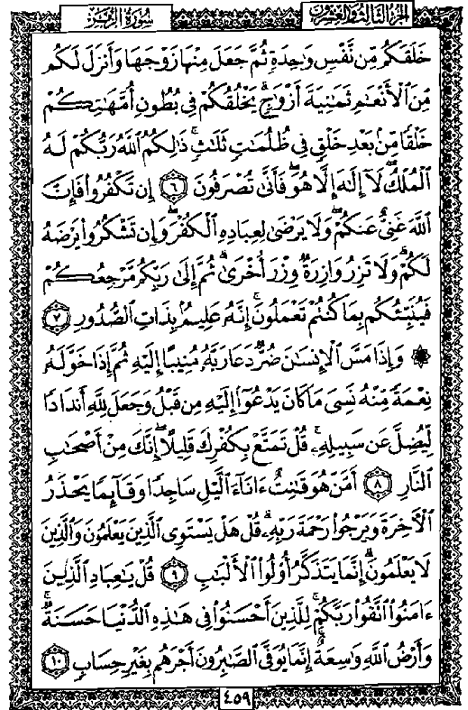 الجزء الثالث والعشرون
سورة الزمر
خَلَقَكُم مِّن نَّفْسٍ وَٰحِدَةٍ ثُمَّ جَعَلَ مِنْهَا زَوْجَهَا وَأَنزَلَ لَكُم
مِّنَ ٱلْأَنْعَٰمِ ثَمَٰنِيَةَ أَزْوَٰجٍ ۚ يَخْلُقُكُمْ فِي بُطُونِ أُمَّهَٰتِكُمْ
خَلْقًا مِّنۢ بَعْدِ خَلْقٍ فِي ظُلُمَٰتٍ ثَلَٰثٍ ۚ ذَٰلِكُمُ ٱللَّهُ رَبُّكُمْ لَهُ
ٱلْمُلْكُ ۖ لَآ إِلَٰهَ إِلَّا هُوَ ۖ فَأَنَّىٰ تُصْرَفُونَ ٦ إِن تَكْفُرُوا۟ فَإِنَّ
ٱللَّهَ غَنِيٌّ عَنكُمْ ۖ وَلَا يَرْضَىٰ لِعِبَادِهِ ٱلْكُفْرَ ۖ وَإِن تَشْكُرُوا۟ يَرْضَهُ
لَكُمْ ۗ وَلَا تَزِرُ وَازِرَةٌ وِزْرَ أُخْرَىٰ ۗ ثُمَّ إِلَىٰ رَبِّكُم مَّرْجِعُكُمْ
فَيُنَبِّئُكُم بِمَا كُنتُمْ تَعْمَلُونَ ۚ إِنَّهُۥ عَلِيمٌۢ بِذَاتِ ٱلصُّدُورِ ٧
۞ وَإِذَا مَسَّ ٱلْإِنسَٰنَ ضُرٌّ دَعَا رَبَّهُۥ مُنِيبًا إِلَيْهِ ثُمَّ إِذَا خَوَّلَهُۥ
نِعْمَةً مِّنْهُ نَسِيَ مَا كَانَ يَدْعُوٓا۟ إِلَيْهِ مِن قَبْلُ وَجَعَلَ لِلَّهِ أَندَادًا
لِّيُضِلَّ عَن سَبِيلِهِۦ ۚ قُلْ تَمَتَّعْ بِكُفْرِكَ قَلِيلًا ۖ إِنَّكَ مِنْ أَصْحَٰبِ
ٱلنَّارِ ٨ أَمَّنْ هُوَ قَٰنِتٌ ءَانَآءَ ٱلَّيْلِ سَاجِدًا وَقَآئِمًا يَحْذَرُ
ٱلْءَاخِرَةَ وَيَرْجُوا۟ رَحْمَةَ رَبِّهِۦ ۗ قُلْ هَلْ يَسْتَوِي ٱلَّذِينَ يَعْلَمُونَ وَٱلَّذِينَ
لَا يَعْلَمُونَ ۗ إِنَّمَا يَتَذَكَّرُ أُو۟لُوا۟ ٱلْأَلْبَٰبِ ٩ قُلْ يَٰعِبَادِ ٱلَّذِينَ
ءَامَنُوا۟ ٱتَّقُوا۟ رَبَّكُمْ ۚ لِلَّذِينَ أَحْسَنُوا۟ فِي هَٰذِهِ ٱلدُّنْيَا حَسَنَةٌ ۗ
وَأَرْضُ ٱللَّهِ وَٰسِعَةٌ ۗ إِنَّمَا يُوَفَّى ٱلصَّٰبِرُونَ أَجْرَهُم بِغَيْرِ حِسَابٍ ١٠
٤٥٩